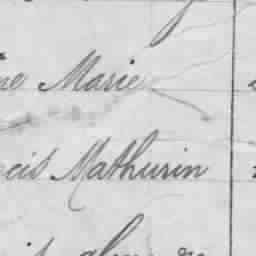 ne Marie
cis Mathurin